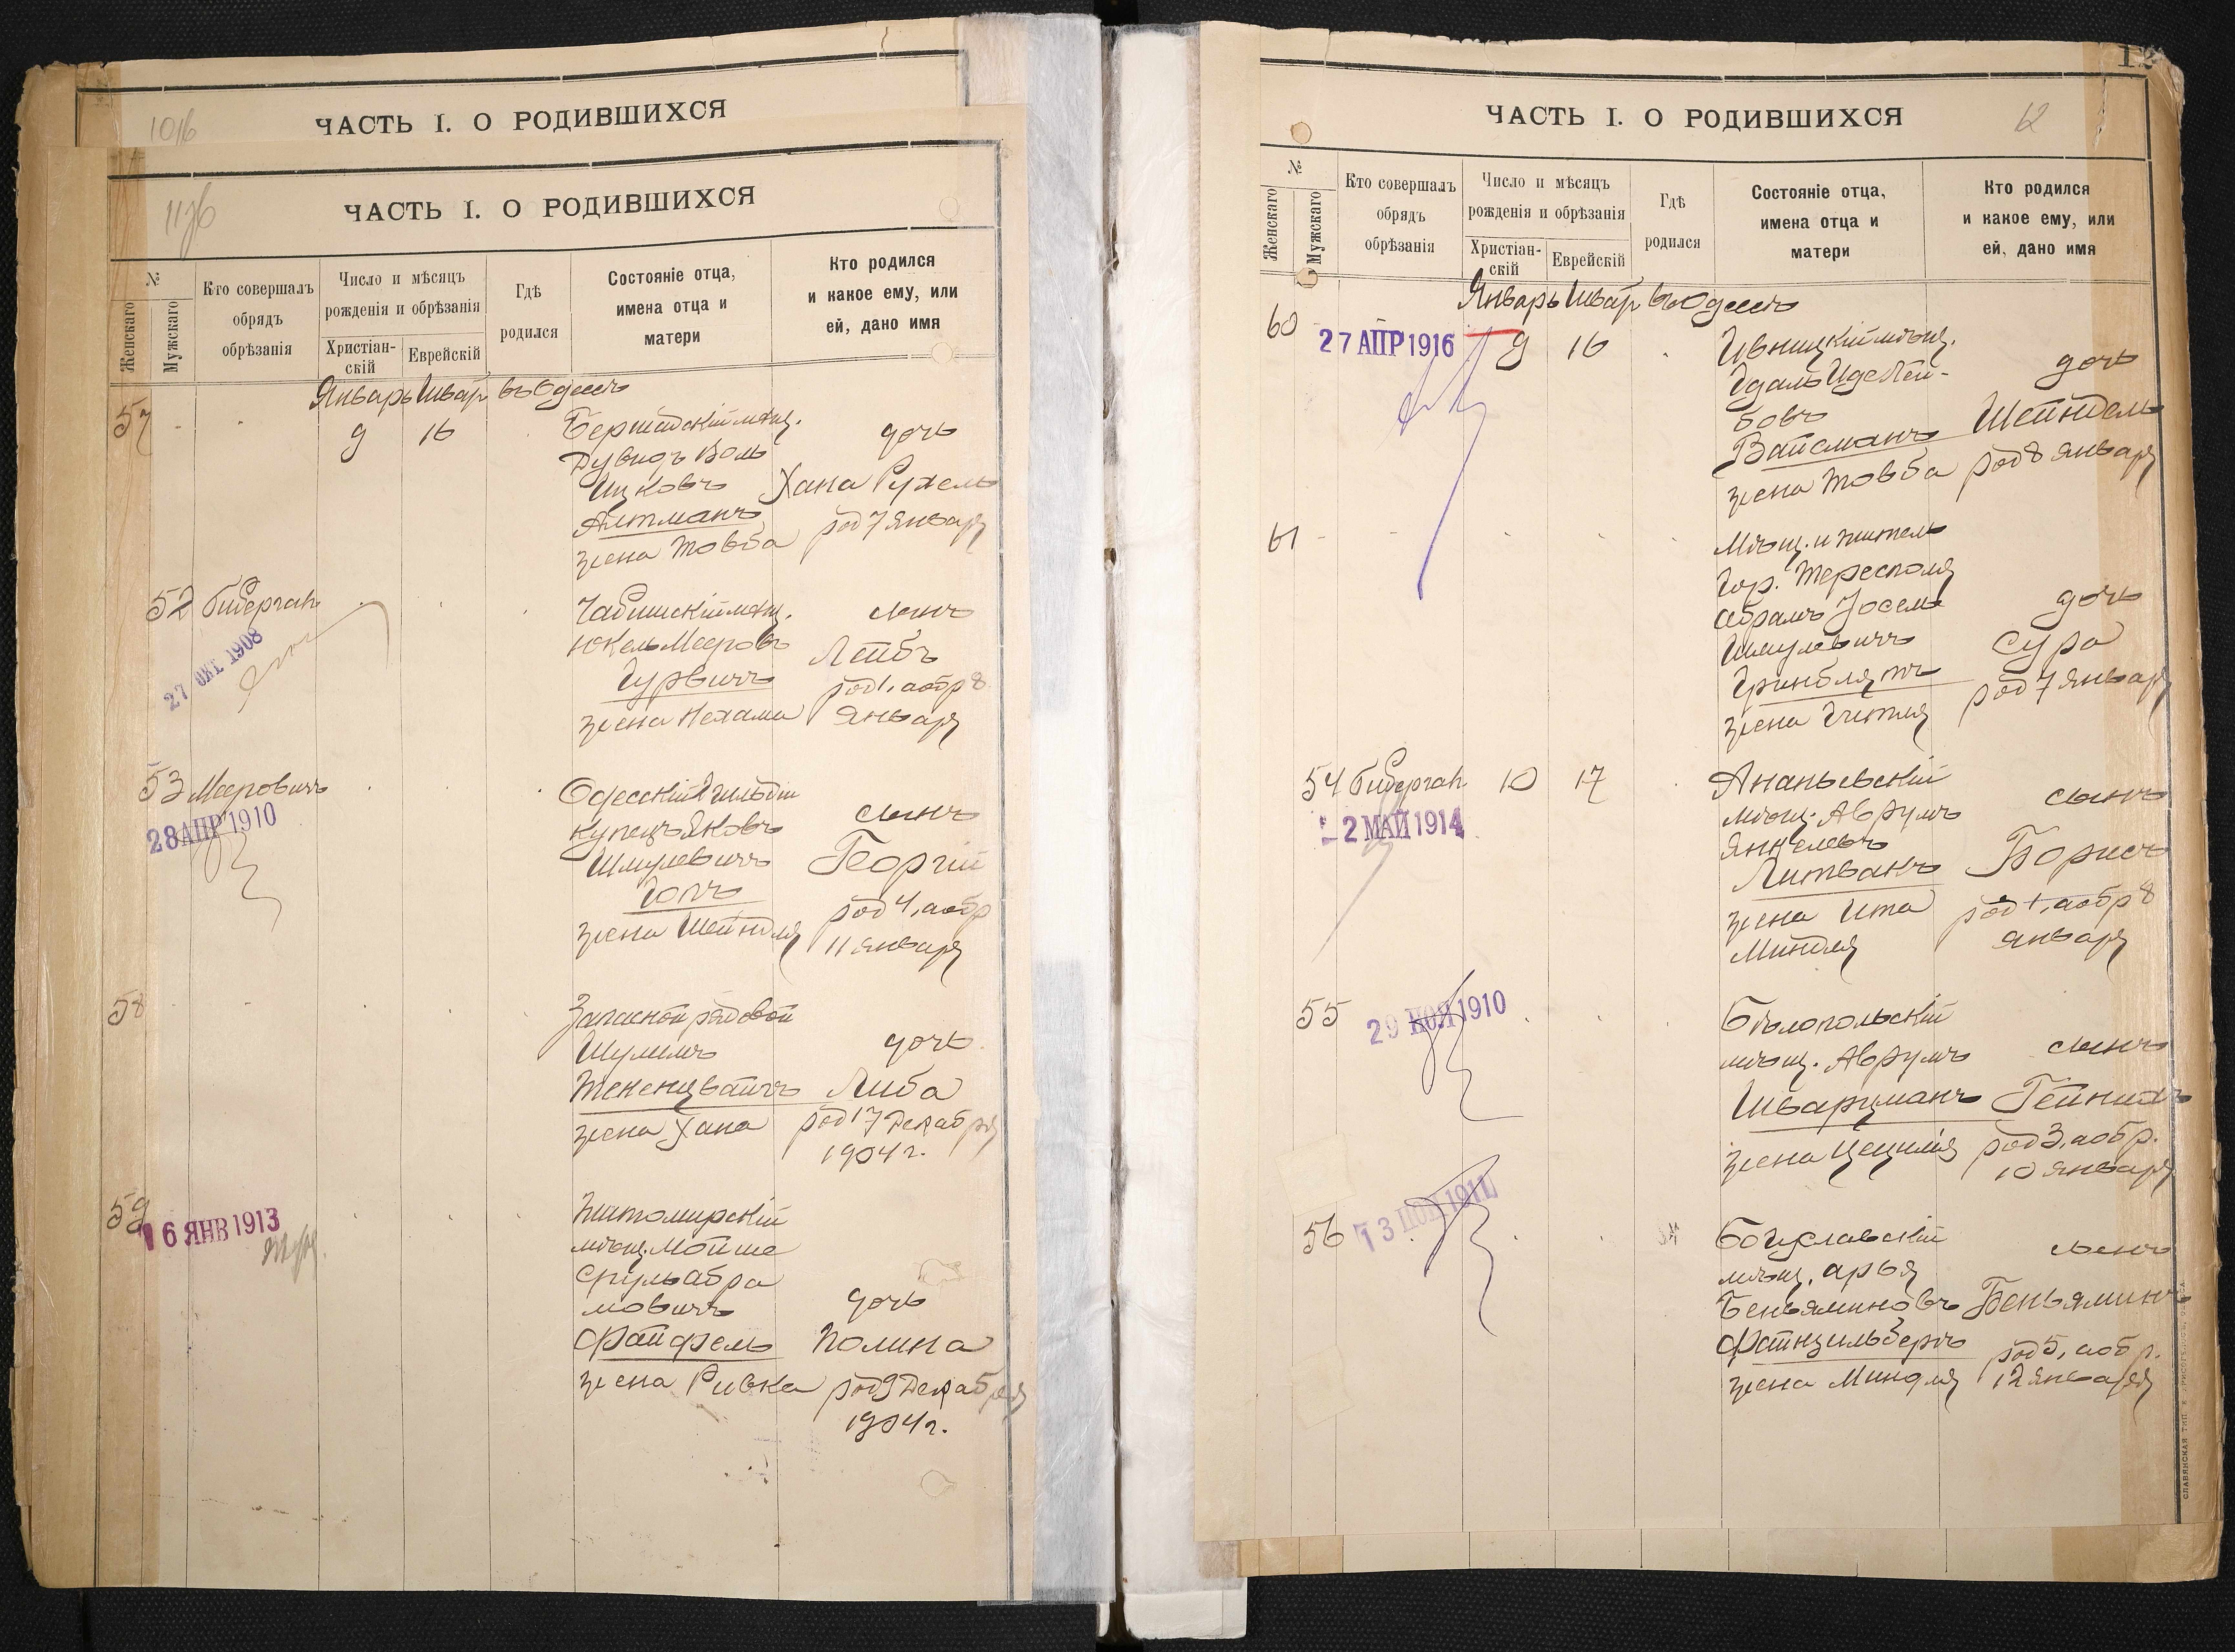 ЧАСТЬ I. О РОДИВШИХСЯ
ЧАСТЬ I. О РОДИВШИХСЯ
№
Женскаго
Мужскаго
Кто совершалъ
обрядъ
обрѣзанія
Число и мѣсяцъ
рожденія и обрѣзанія
Христіан-
скій
Еврейскій
Гдѣ
родился
Состояніе отца,
имена отца и
матери
Кто родился
и какое ему, или
ей, дано имя
Январь Шват въ Одессѣ
57
9 16
Бершадскій мѣщ.
Дувидъ Воль
Ицковъ
Алтманъ
жена Товба
дочь
Хана Рухель
род 7 Января
52
27 ОКТ 1908
мѣщ.
Юкель Мееровъ
Гурвичъ
жена Нехама
сынъ
Лейбъ
род 1, аобр 8
Января
53 Мееровичъ
28 АПР 1910
Одесскій 2 гильдіи
купецъ Яковъ
Шмулевичъ
жена Шейндля
сынъ
Георгій
род 4, аобр
11 Января
58
Запасной рядовой
Шулимъ
жена Хана
дочь
Либа
род 17 Декабря
1904 г.
59
16 ЯНВ 1913
Житомирскій
мѣщ. Мойше
Сруль Абра
мовичъ
Файфель
жена Ривка
дочь
Полина
род 9 Декабря
1904 г.
12
ЧАСТЬ I. О РОДИВШИХСЯ
12
№
Женскаго
Мужскаго
Кто совершалъ
обрядъ
обрѣзанія
Число и мѣсяцъ
рожденія и обрѣзанія
Христіан-
скій
Еврейскій
Гдѣ
родился
Состояніе отца,
имена отца и
матери
Кто родился
и какое ему, или
ей, дано имя
Январь Шват въ Одессѣ
60
27 АПР 1916
9 16
мѣщ.
Лей-
бовъ
Вайсманъ
жена Товба
дочь
Шейндель
род 8 Января
61
Мѣщ. и житель
гор. Тересполя
Абрамъ Іосель
Шмулевичъ
Гринблятъ
жена Гитля
дочь
Сура
род 7 Января
54
2 МАЙ 1914
10 17
Ананьевскій
мѣщ. Аврумъ
Янкелевъ
Литванъ
жена Ита
Миндля
сынъ
Борисъ
род 1, аобр 8
Января
55
29 НОЯ 1910
Бѣлопольскій
мѣщ. Аврумъ
Шварцманъ
жена Цецилія
сынъ
Гейнихъ
род 3, аобр.
10 Января
56
1911
Богуславскій
мѣщ. Арья
Беньяминовъ
Файнзильберъ
жена Миндля
сынъ
Беньяминъ
род 5, аобр.
12 Января